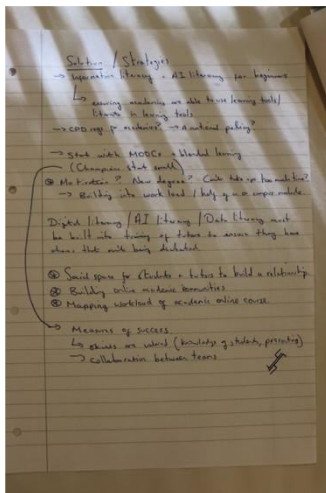 Solution / Strategies
→ Information literacy + AI literacy for beginners
↳ ensuring academics are able to use learning tools/
literate in learning tools
→ CPD for academics? → A national policy?
→ Start with MOOCs + blended learning
(Champion start small)
Motivation? New degree? Could take up too much time?
→ Building into work load / help of on campus module.
Digital literacy / AI literacy / Data literacy must
be built into training of tutors to ensure they have
time being dedicated.
Social space for students + tutors to build a relationship
Building online academic communities
Mapping workload of academic online course
→ Measures of success
↳ are valued (knowledge of students, presenting)
→ collaboration between teams